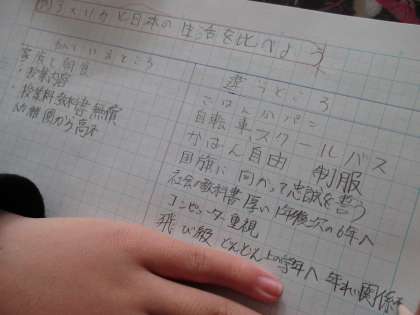 アメリカと日本の生活を比べよう
にているところ
違うところ
ごはんかパン
自転車、スクールバス
かばん自由 制服
国旗に向かって忠誠を誓う
社会の教科書厚い 1年後次の6年へ
コンピューター重視
飛び級 どんどん上の学年へ 年れい関係
・授業料、教科書無償
幼稚園から高校